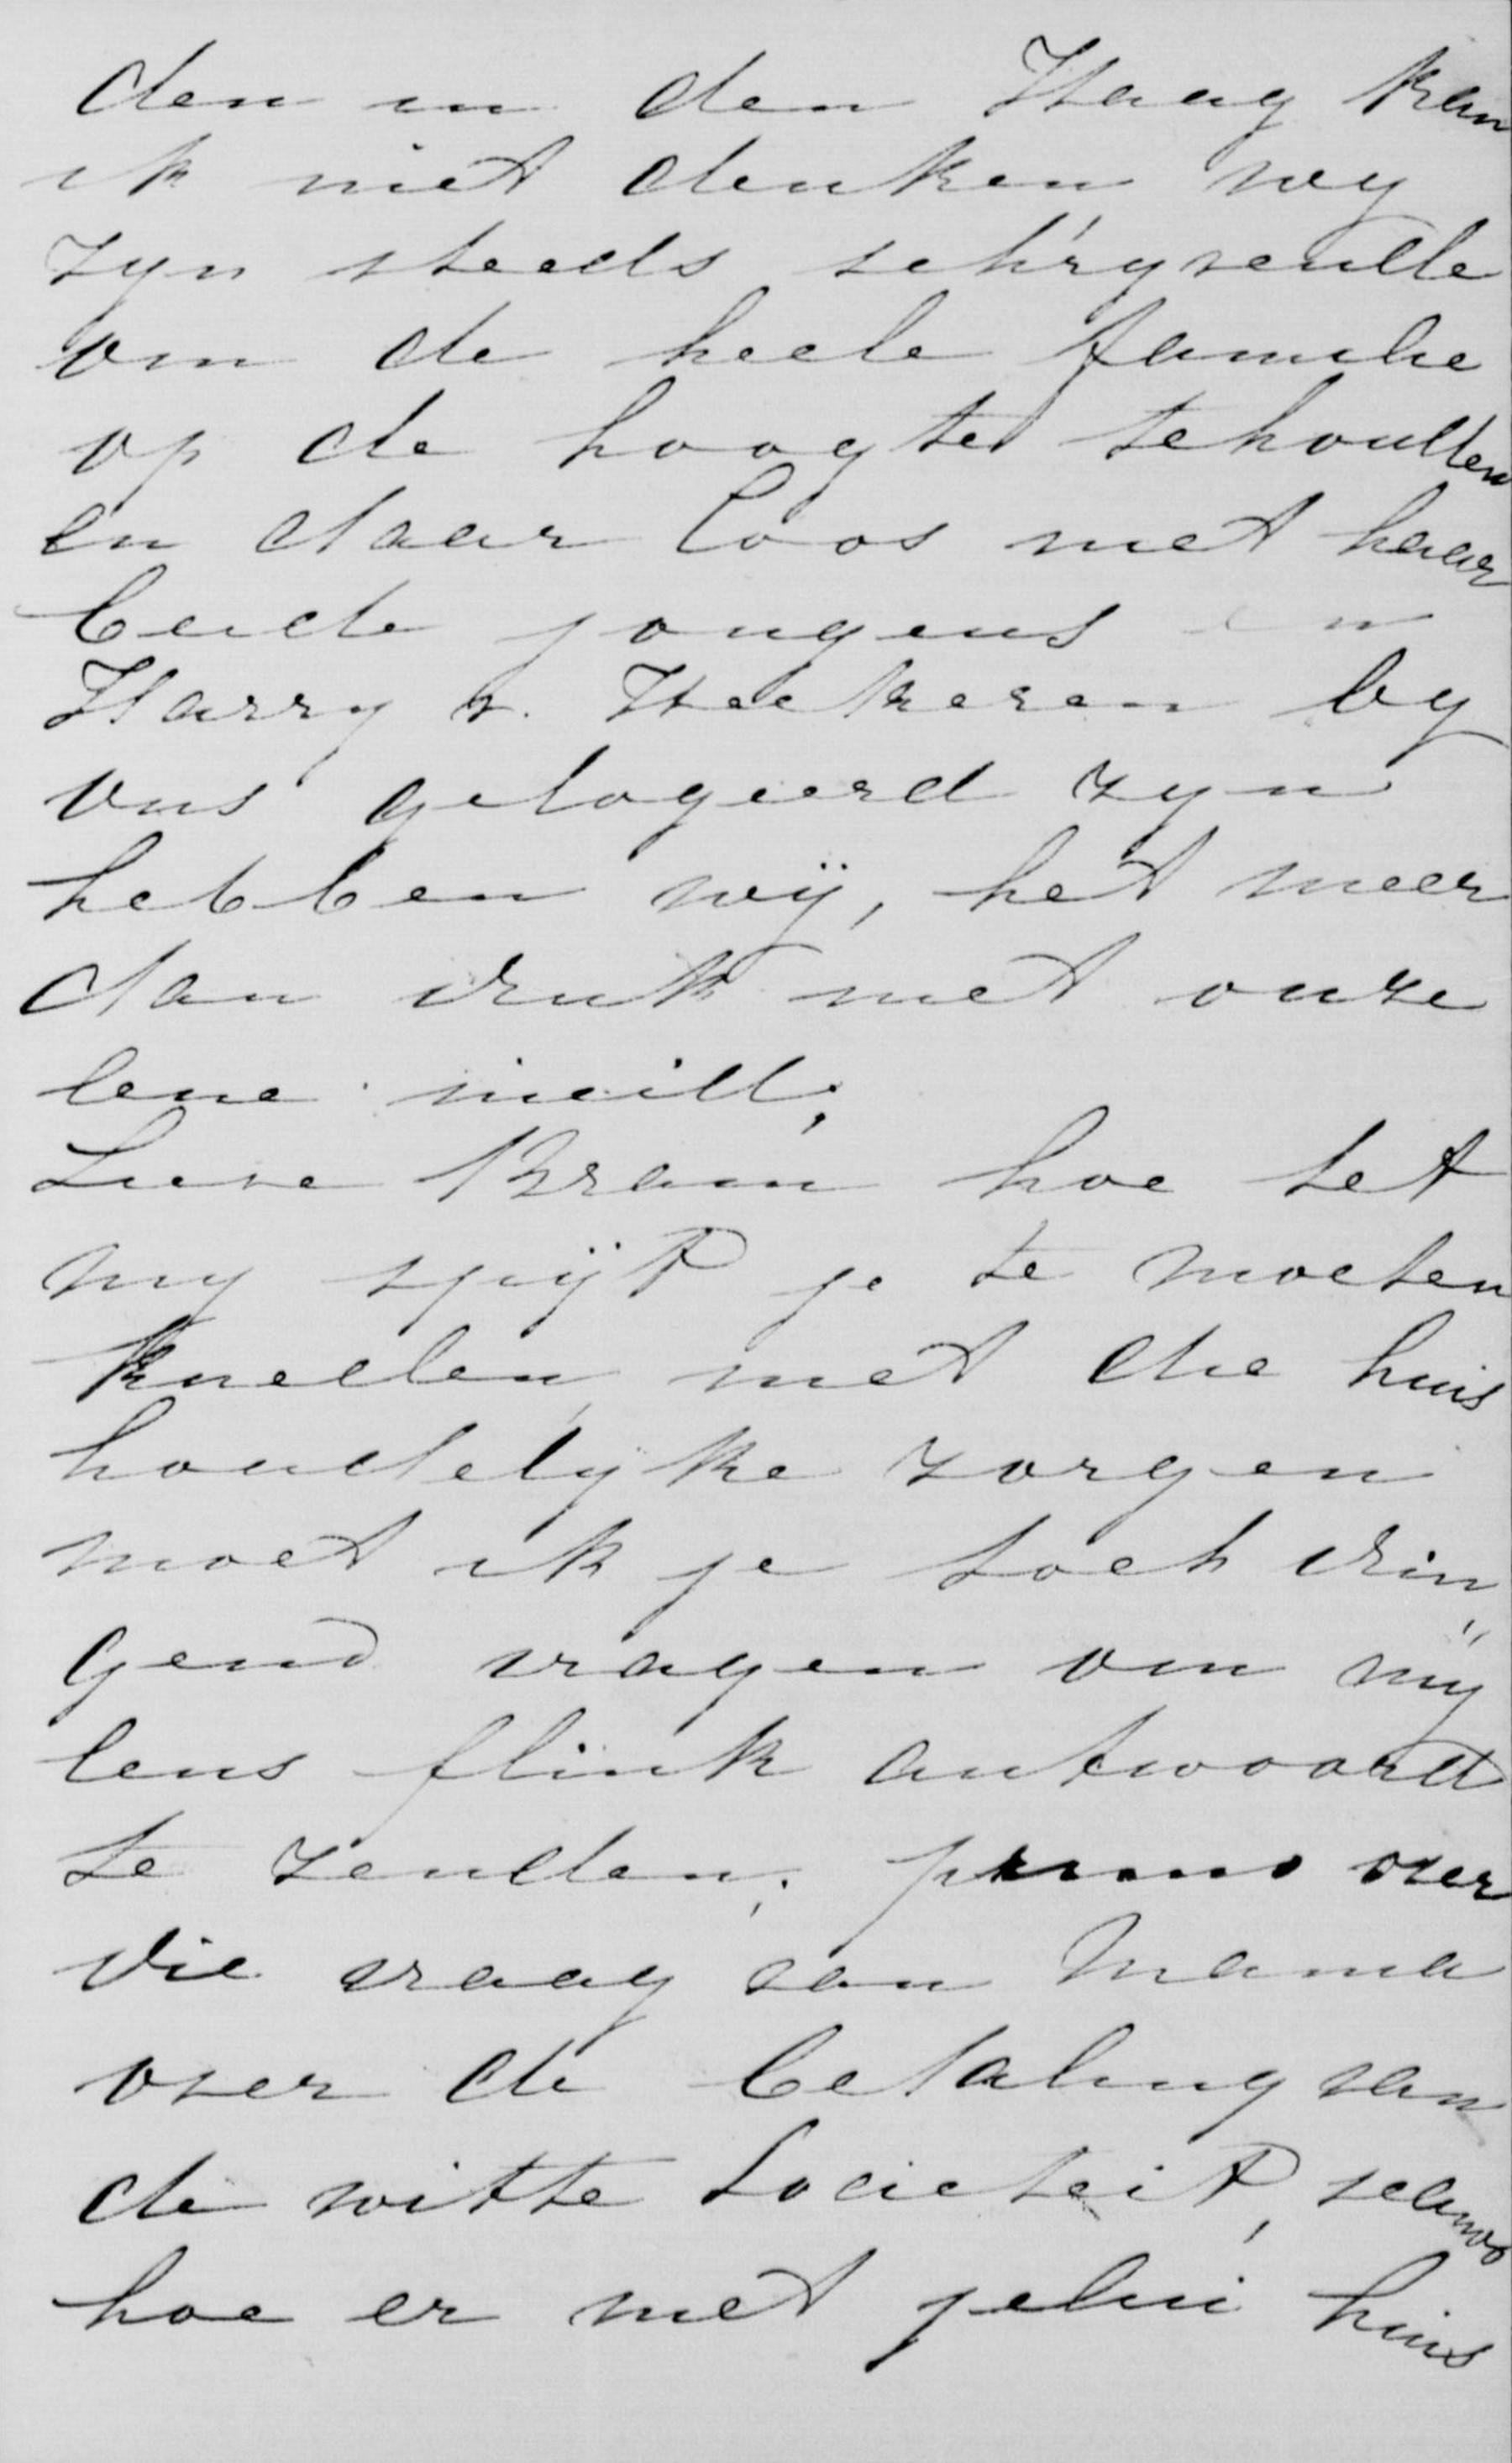 den in den Haag kan
ik niet denken wy
zyn steeds schryvende
om de heele familie
op de hoogte tehouden
en daar Coos met haar
beide jongens en
Harry v. Heekeren by
ons gelogeerd zyn
hebben wij, het meer
dan druk met onze
eene meid.
Lieve Bram hoe het
my spijt je te moeten
kwellen, met die huis
houdelyke zorgen
moet ik je toch drin„
gend vragen om my
eens flink antwoord
te zenden; primo over
die vraag van Mama
over de betaling van
de witte Societeit, secundo
hoe er met jelui huis